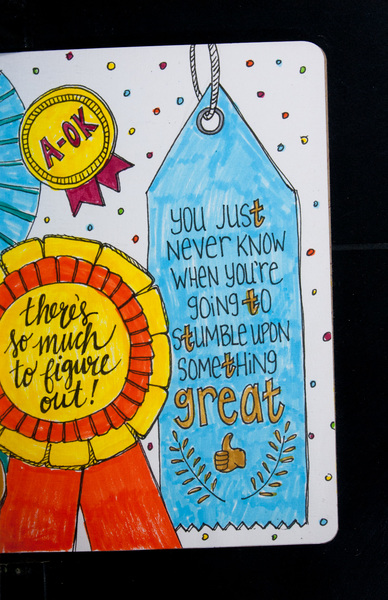 A-OK
there's
so much
to figure
out!
YOU JUSt
NEVER KNOW
WHEN YOU'RE
GOING tO
StUMBLE UPON
SOMEtHING
great